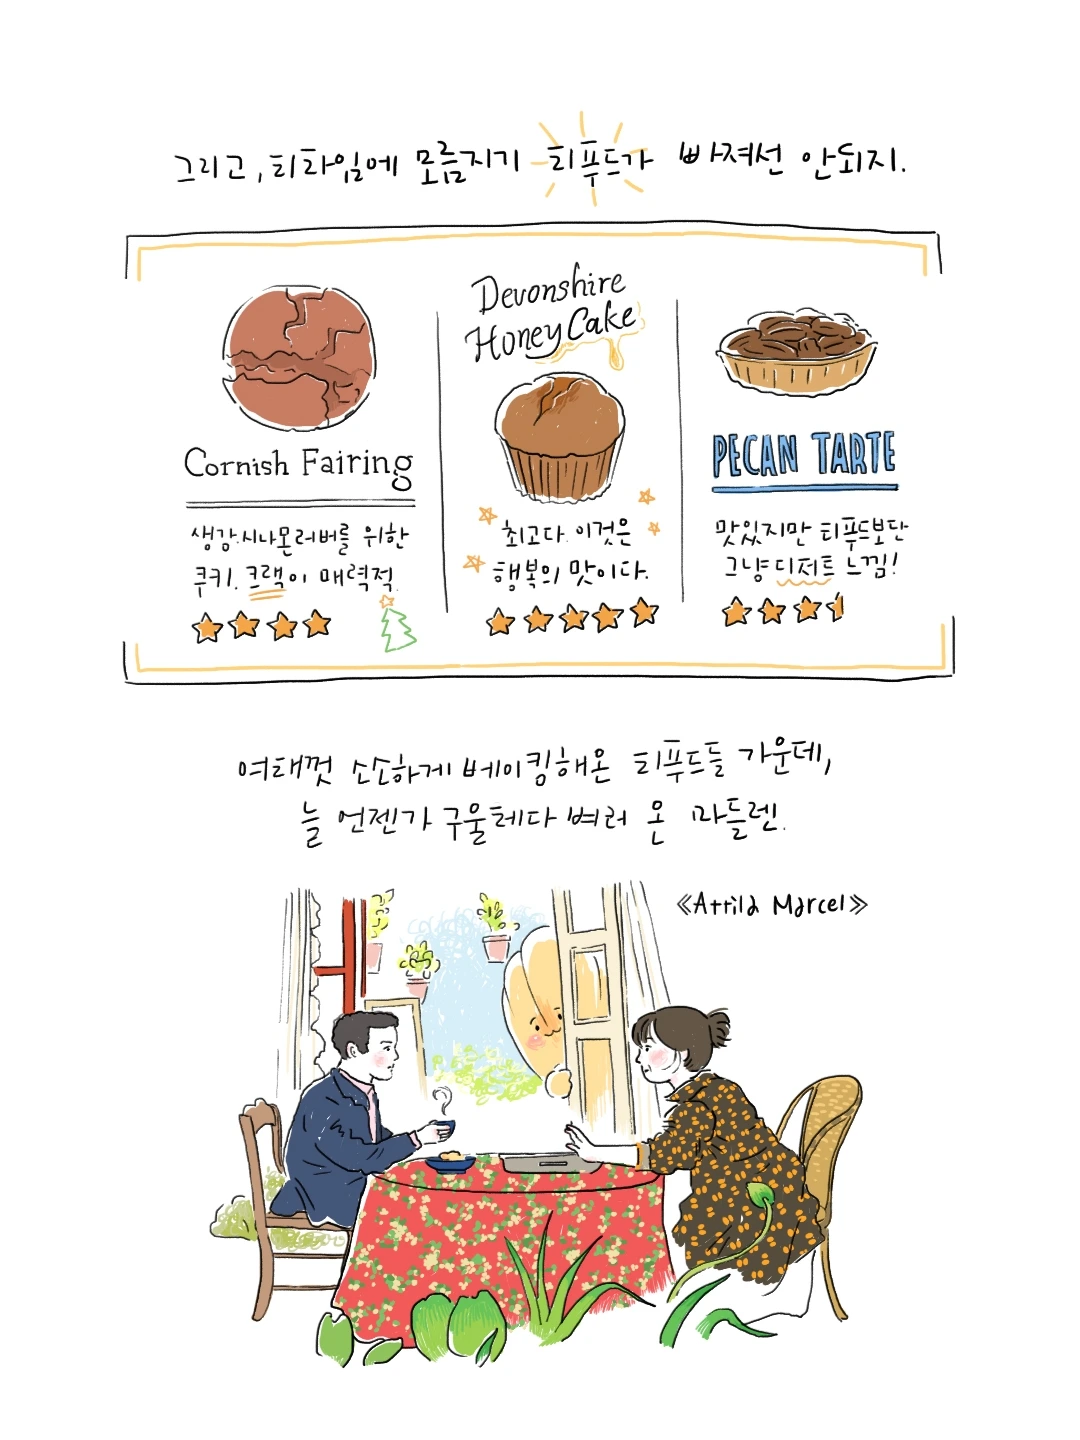 그리고, 티타임에 모름지기 티푸드가 빠져선 안되지.
Cornish Fairing
생강.시나몬러버를 위한
쿠키. 크랙이 매력적.
Devonshire
Honey Cake
최고다. 이것은
행복의 맛이다.
PECAN TARTE
맛있지만 티푸드보단
그냥 디저트 느낌!
여태껏 소소하게 베이킹해온 티푸드들 가운데,
늘 언젠가 구울테다 벼러 온 마들렌.
《Attila Marcel》